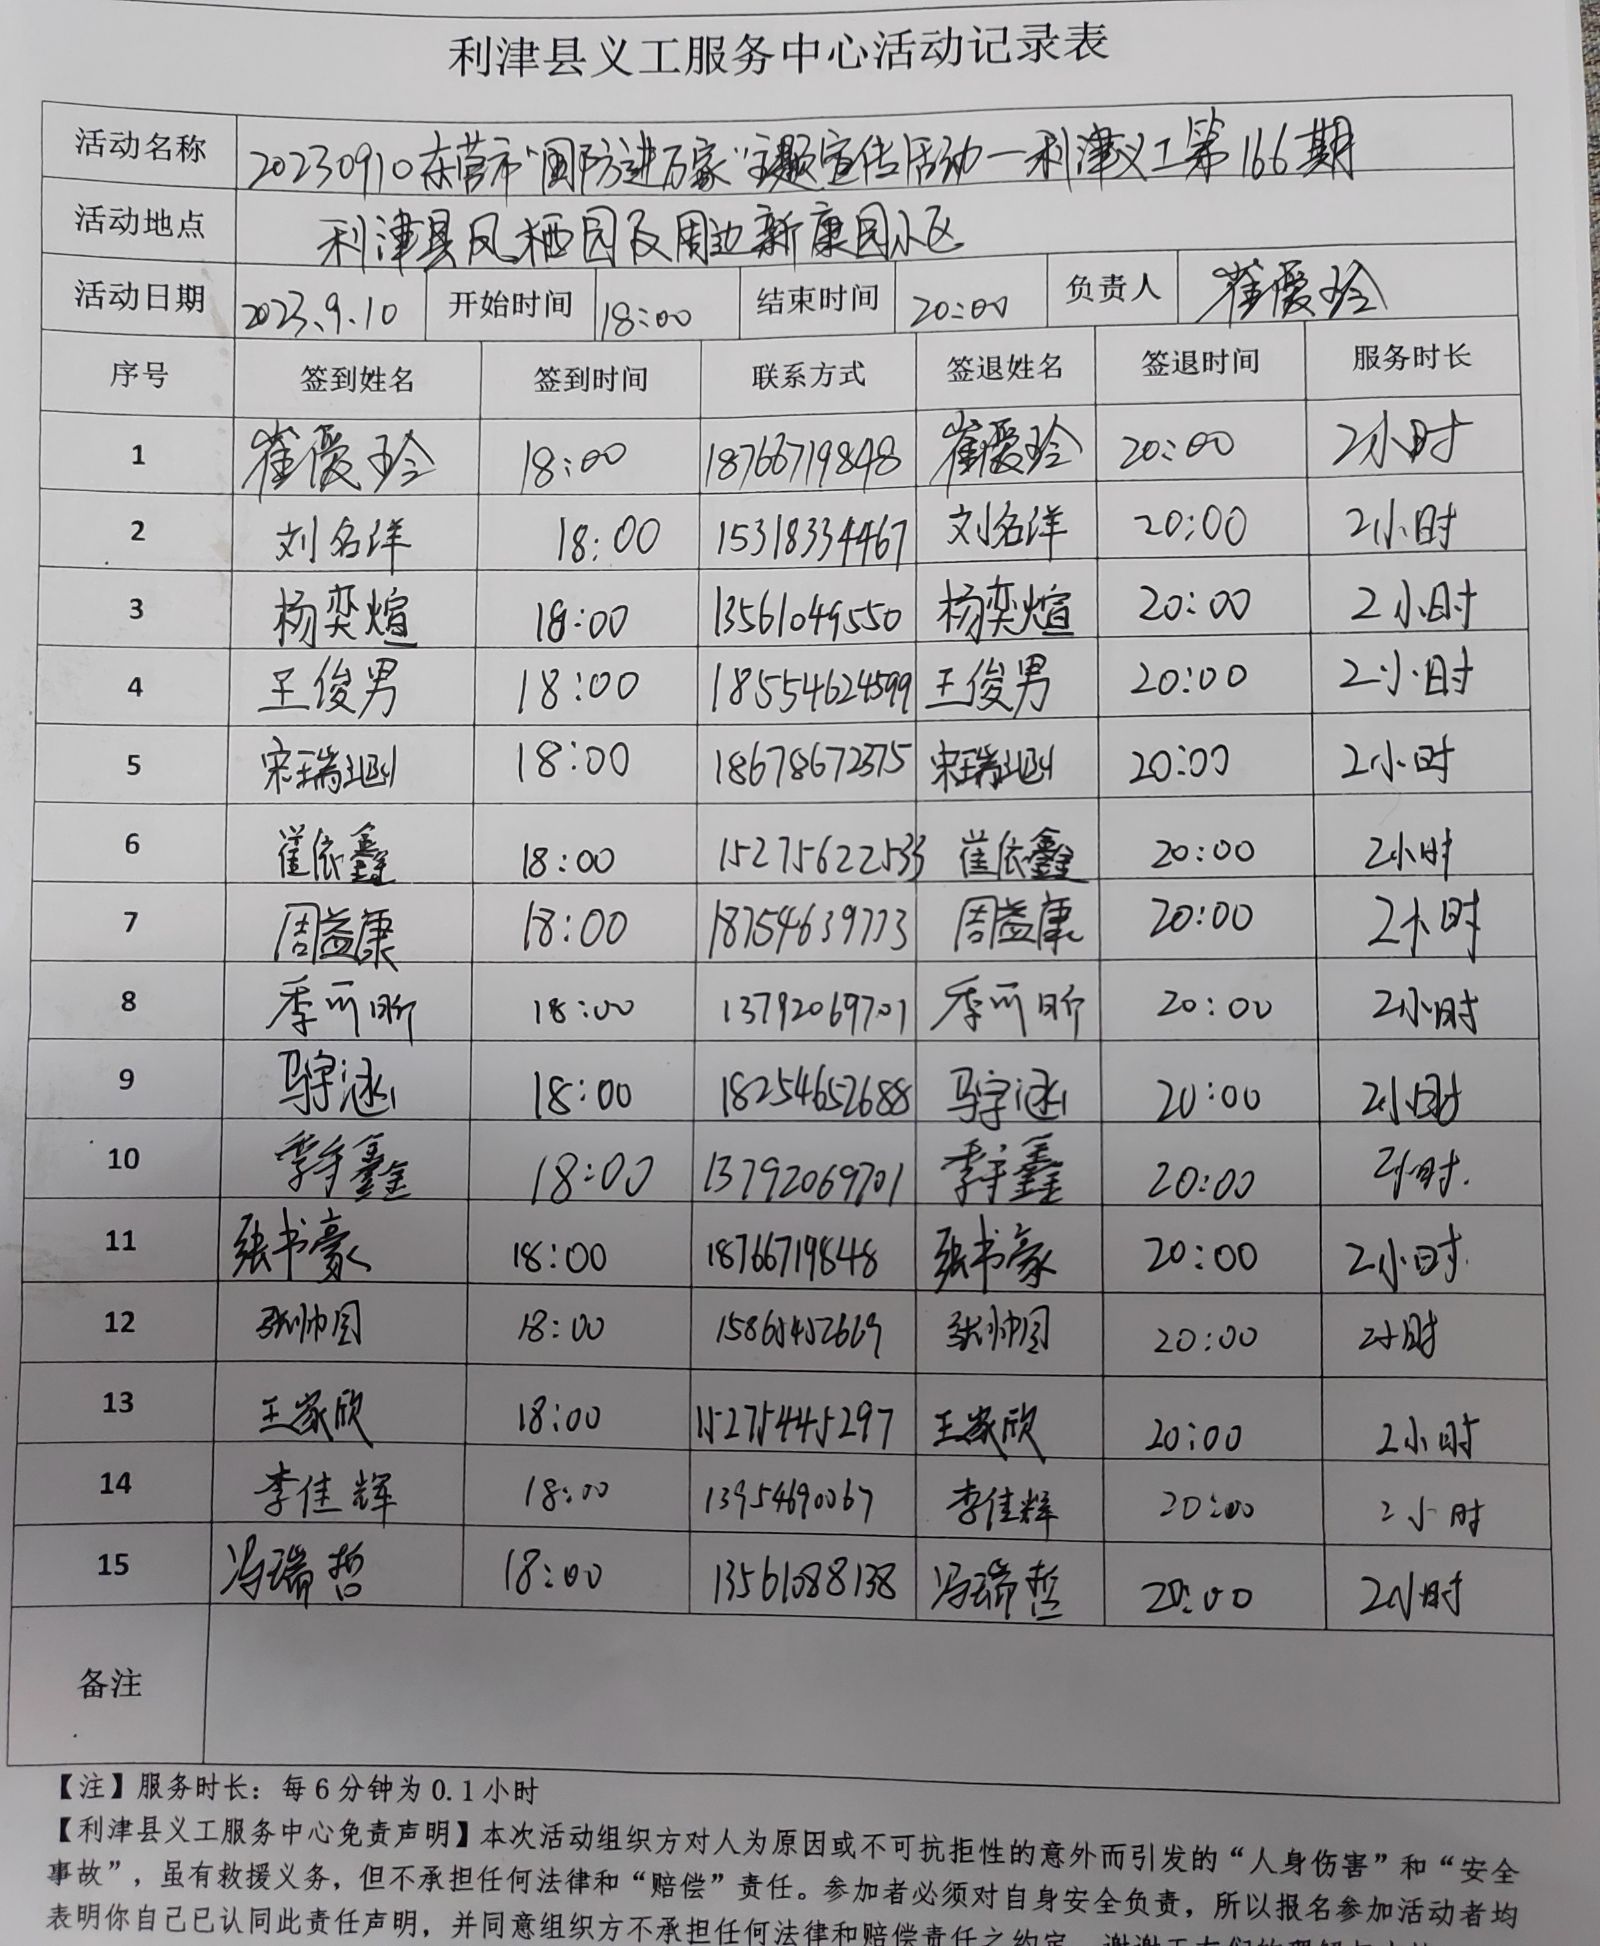 利津县义工服务中心活动记录表
活动名称 20230910东营市"国防进万家"主题宣传活动一利津义工第166期
活动地点 利津县凤栖园及周边新康园小区
活动日期 2023.9.10 开始时间 18:00 结束时间 20:00 负责人 崔爱玲
序号 签到姓名 签到时间 联系方式 签退姓名 签退时间 服务时长
1 崔爱玲 18:00 18766719848 崔爱玲 20:00 2小时
2 刘名洋 18:00 15318334467 刘名洋 20:00 2小时
3 杨奕煊 18:00 13561049550 杨奕煊 20:00 2小时
4 王俊男 18:00 18554624599 王俊男 20:00 2小时
5 宋瑞 18:00 18678672375 宋瑞 20:00 2小时
6 崔依鑫 18:00 15275622533 崔依鑫 20:00 2小时
7 周益康 18:00 18754639773 周益康 20:00 2小时
8 季 昕 18:00 13792069701 季 昕 20:00 2小时
9 马宇涵 18:00 18254652688 马宇涵 20:00 2小时
10 季宇鑫 18:00 13792069701 季宇鑫 20:00 2小时.
11 张书豪 18:00 18766719848 张书豪 20:00 2小时.
12 张帅国 18:00 15865452669 张帅国 20:00 2小时
13 王家欣 18:00 15275445297 王家欣 20:00 2小时
14 李佳辉 18:00 13954690067 李佳辉 20:00 2小时
15 冯瑞哲 18:00 13561088138 冯瑞哲 20:00 2小时
备注
【注】服务时长：每6分钟为0.1小时
【利津县义工服务中心免责声明】本次活动组织方对人为原因或不可抗拒性的意外而引发的“人身伤害”和“安全
事故”，虽有救援义务，但不承担任何法律和“赔偿”责任。参加者必须对自身安全负责，所以报名参加活动者均
表明你自己已认同此责任声明，并同意组织方不承担任何法律和赔偿责任之约定